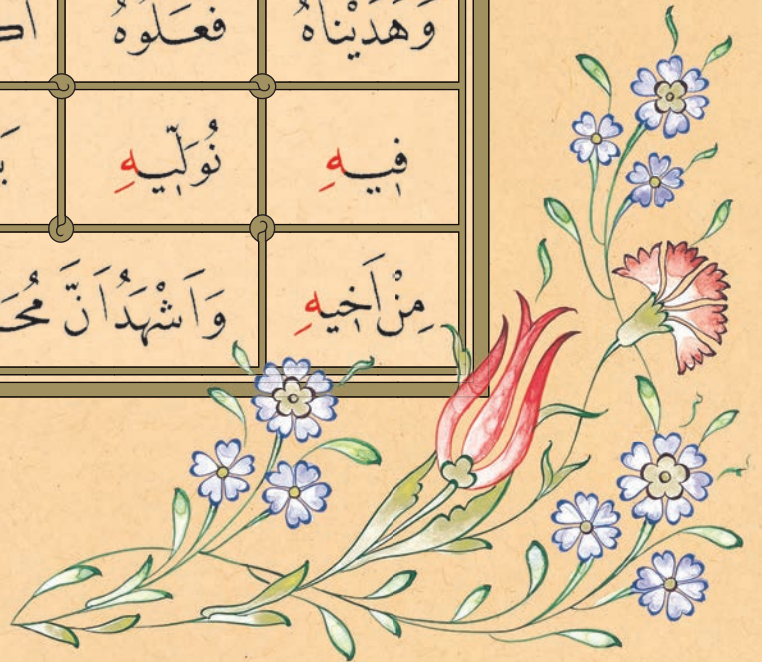 وَهَدَيْنَاهُ فَعَلُوهُ
فِيهِ نُوَلِّيهِ
مِنْ اَخِيهِ وَاَشْهَدُ اَنَّ